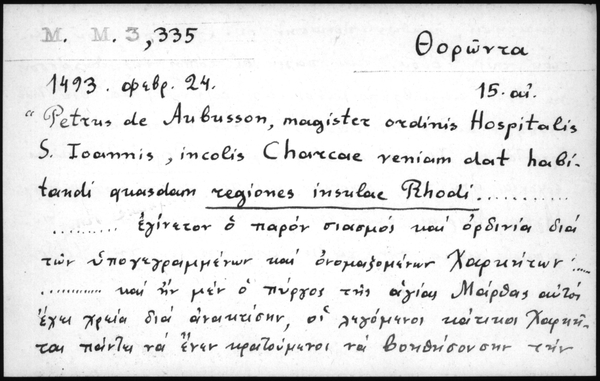 M. M. 3,335
Θορῶντα
1493. φεβρ. 24.
15. αἰ.
"Petrus de Aubusson, magister ordinis Hospitalis
S. Ioannis, incolis Charcae veniam dat habi-
tandi quasdam regiones insulae Rhodi............
.......... ἐγίνετον ὁ παρόν σιασμός καί ὀρδινία διά
τῶν ὑπογεγραμμένων καί ὀνομαζομένων Χαρκήτων .....
............ καί ἦν μέν ὁ πύργος τῆς ἁγίας Μάρθας αὐτός
ἔχει χρεία διά ἀνακτίσην, οἱ λεγόμενοι κάτικοι Χαρκῆ-
ται πάντες νά ἔνεν κρατούμενοι νά βοηθήσουνσην τήν